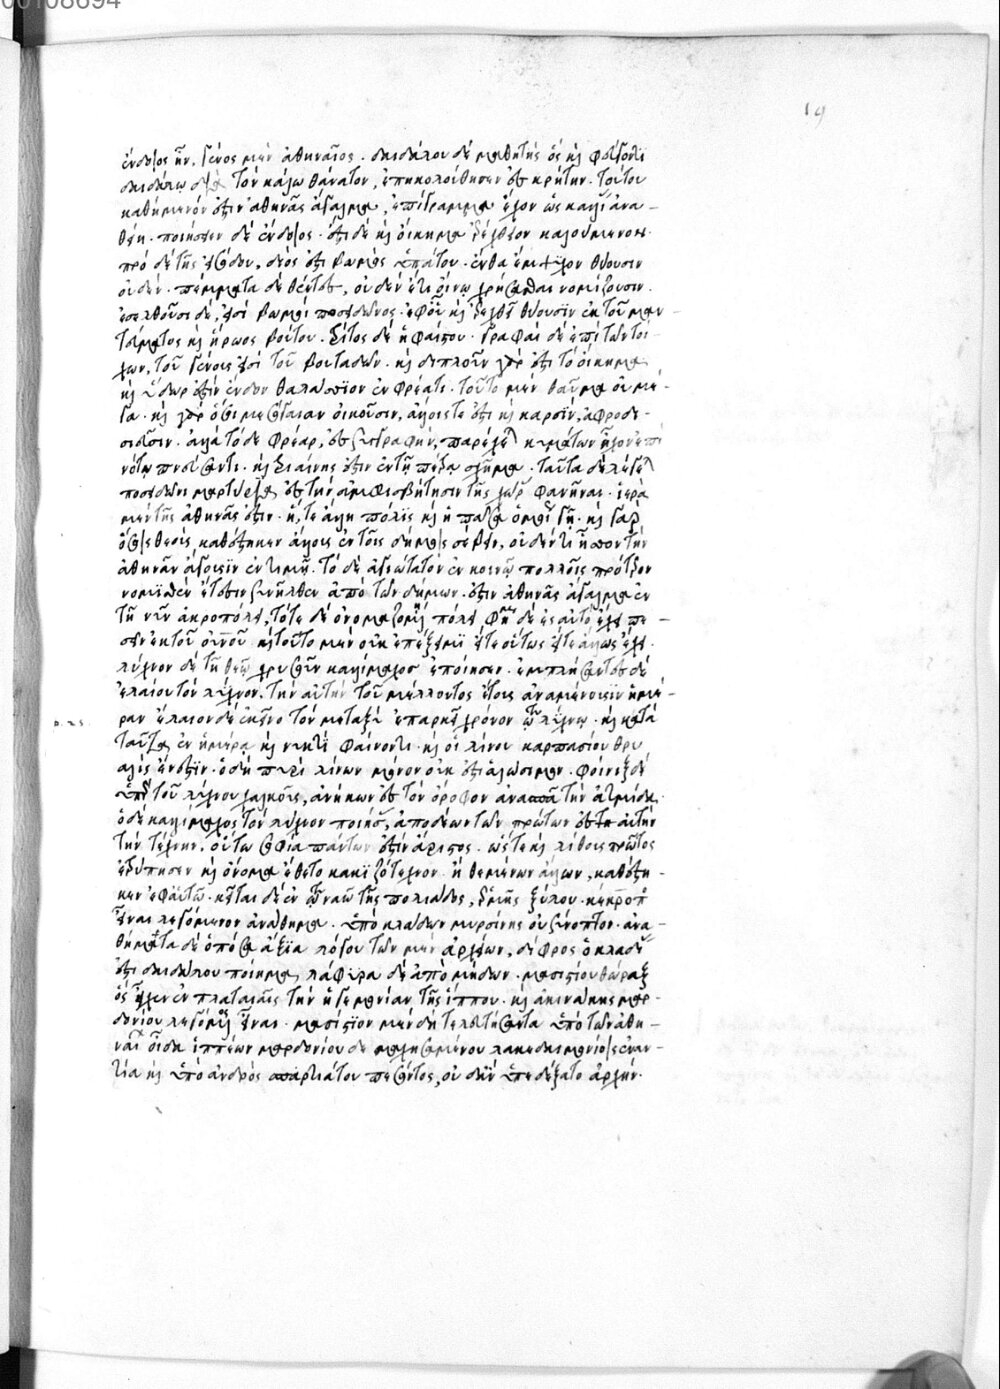 ἔνδοιος ἦν, γένος μὲν ἀθηναῖος. δαιδάλου δὲ μαθητὴς ὃς καὶ φεύγοντι
δαιδάλῳ διὰ τὸν κάλω θάνατον, ἐπηκολούθησεν ἐς κρήτην. τούτου
καθήμενόν ἐστιν ἀθηνᾶς ἄγαλμα, ἐπίγραμμα ἔχον ὡς καλλί ἀνα-
θείη. ποιήσειεν δὲ ἔνδοιος. ἔστι δὲ καὶ οἴκημα ἐρέχθειον καλούμενον.
πρὸ δὲ τῆς ἐσόδου, διός ἐστι βωμὸς ὑπάτου. ἔνθα ἔμψυχον θύουσιν
οὐδέν. πέμματα δὲ θέντες, οὐδὲν ἔτι οἴνῳ χρήσασθαι νομίζουσιν.
ἐσελθοῦσι δέ, εἰσὶ βωμοὶ ποσειδῶνος. ἐφ' οὗ καὶ ἐρεχθεῖ θύουσιν ἐκ τοῦ μαν-
τεύματος καὶ ἥρωος βούτου. τρίτος δὲ ἡφαίστου. γραφαὶ δὲ ἐπὶ τῶν τοί-
χων, τοῦ γένους εἰσὶ τοῦ βουταδῶν. καὶ διπλοῦν γάρ ἐστι τὸ οἴκημα,
καὶ ὕδωρ ἐστὶν ἔνδον θαλάσσιον ἐν φρέατι. τοῦτο μὲν θαῦμα οὐ μέ-
γα. καὶ γὰρ ὅσοι μεσόγαιαν οἰκοῦσιν, ἄλλοις τε ἔστι καὶ καρσὶν, ἀφροδι-
σιεῦσιν. ἀλλὰ τόδε φρέαρ, ἐς συγγραφήν, παρέχεται κυμάτων ἦχον ἐπὶ
νότῳ πνεύσαντι. καὶ τριαίνης ἐστὶν ἐν τῇ πέτρᾳ σχῆμα. ταῦτα δὲ λέγεται
ποσειδῶνι μαρτύρια ἐς τὴν ἀμφισβήτησιν τῆς χώρας φανῆναι. ἱερὰ
μὲν τῆς ἀθηνᾶς ἐστιν. ἥ, τε ἄλλη πόλις καὶ ἡ πᾶσα ὁμοίως γῆ. καὶ γὰρ
ὅσοις θεοὺς καθέστηκεν ἄλλοις ἐν τοῖς δήμοις σέβειν, οὐδέν τι ἧσσον τὴν
ἀθηνᾶν ἄγουσιν ἐν τιμῇ. τὸ δὲ ἁγιώτατον ἐν κοινῷ πολλοῖς πρότερον
νομισθὲν ἔτεσιν συνῆλθεν ἀπὸ τῶν δήμων. ἐστὶν ἀθηνᾶς ἄγαλμα ἐν
τῇ νῦν ἀκροπόλει, τότε δὲ ὀνομαζομένῃ πόλει. φήμη δὲ ἐς αὐτὸ ἔχει πε-
σεῖν ἐκ τοῦ οὐρανοῦ. καὶ τοῦτο μὲν οὐκ ἐπέξειμι εἴτε οὕτως εἴτε ἄλλως ἔχει.
λύχνον δὲ τῇ θεῷ χρυσοῦν καλλίμαχος ἐποίησεν. ἐμπλήσαντες δὲ
ἐλαίου τὸν λύχνον, τὴν αὐτὴν τοῦ μέλλοντος ἔτους ἀναμένουσιν ἡμέ-
ραν. ἔλαιον δὲ ἐκεῖνο τὸν μεταξὺ ἐπαρκεῖ χρόνον τῷ λύχνῳ. καὶ κατὰ
ταὐτὰ ἐν ἡμέρᾳ καὶ νυκτὶ φαίνοντι. καὶ οἱ λίνου καρπασίου θρυ-
αλὶς ἔνεστιν. ὃ δὴ πυρὶ λίνων μόνον οὐκ ἔστι ἁλώσιμον. φοίνιξ δὲ
ὑπὲρ τοῦ λύχνου χαλκοῦς, ἀνήκων ἐς τὸν ὄροφον ἀνασπᾷ τὴν ἀτμίδα.
ὁ δὲ καλλίμαχος τὸν λύχνον ποιήσας, ἀποδέων τῶν πρώτων ἐς αὐτὴν
τὴν τέχνην, οὕτω σοφίᾳ πάντων ἐστὶν ἄριστος. ὥστε καὶ λίθους πρῶτος
ἐτρύπησεν καὶ ὄνομα ἔθετο κακιζότεχνον. ἢ θεμένων ἄλλων, καθέστη-
κεν ἐφ' αὑτῷ. κεῖται δὲ ἐν τῷ ναῷ τῆς πολιάδος, ἑρμῆς ξύλου. κέκροπος
εἶναι λεγόμενον ἀνάθημα. ὑπὸ κλάδων μυρσίνης οὐ σύνοπτον. ἀνα-
θήματα δὲ ὁπόσα ἄξια λόγου τῶν μὲν ἀρχαίων, δίφρος ὀκλαδίας
ἐστὶ δαιδάλου ποίημα, λάφυρα δὲ ἀπὸ μήδων. μασιστίου θώραξ
ὃς εἶχεν ἐν πλαταιαῖς τὴν ἡγεμονίαν τῆς ἵππου. καὶ ἀκινάκης μαρ-
δονίου λεγόμενος εἶναι. μασίστιον μὲν δὴ τελευτήσαντα ὑπὸ τῶν ἀθη-
ναίων οἶδα ἱππέων μαρδονίου δὲ μαχησαμένου λακεδαιμονίοις ἐναν-
τία καὶ ὑπὸ ἀνδρὸς σπαρτιάτου πεσόντος, οὐδ' ἂν ὑπεδέξαντο ἀρχήν.